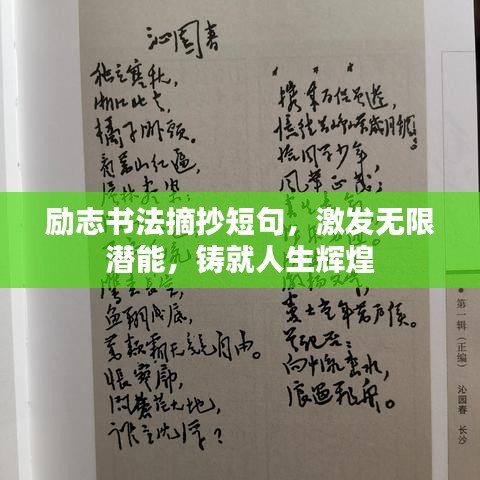 沁园春
独立寒秋,
湘江北去,
橘子洲头。
看万山红遍,
鹰击长空,
鱼翔浅底,
万类霜天竞自由。
怅寥廓,
问苍茫大地,
谁主沉浮?
携来百侣曾游,
忆往昔峥嵘岁月稠。
恰同学少年,
风华正茂;
粪土当年万户侯。
曾记否:
向中流击水,
浪遏飞舟。
励志书法摘抄短句，激发无限
潜能，铸就人生辉煌
第一辑（正编） 沁园春 长沙